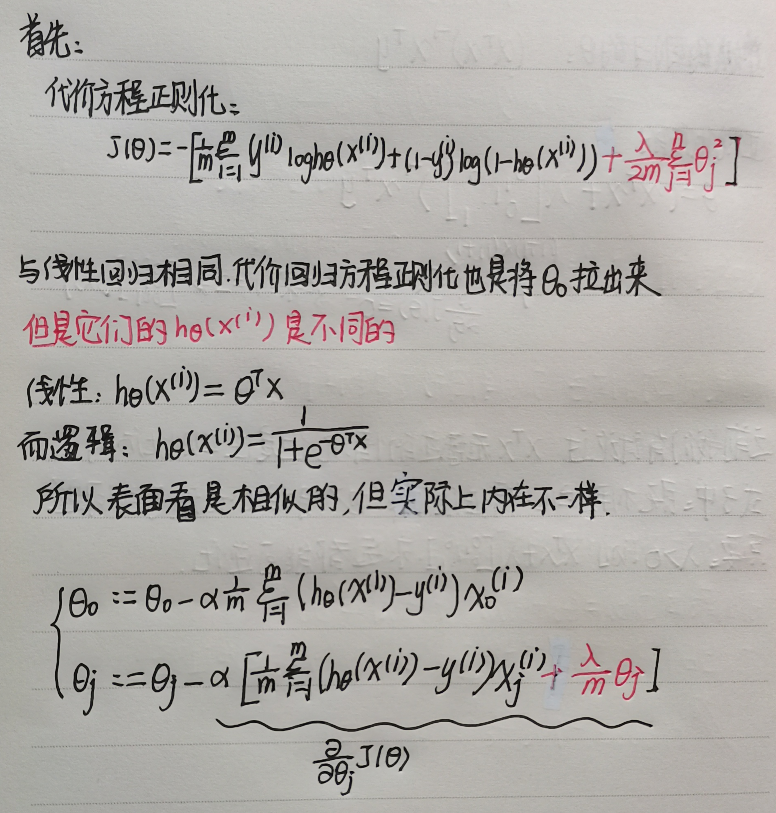 首先:
代价方程正则化:
J(θ)=-[1/m Σ_{i=1}^{m} y^{(i)} log hθ(x^{(i)})+(1-y^{i)} log(1-hθ(x^{(i)}))+ λ/2m Σ_{j=1}^{n} θ_j^2]
与线性回归相同.代价回归方程正则化也是将θ₀拉出来
但是它们的hθ(x^{(i)})是不同的
线性: hθ(x^{(i)})=θ^T x
而逻辑: hθ(x^{(i)})= 1/(1+e^{-θ^T x})
所以表面看是相似的,但实际上内在不一样.
θ₀ := θ₀-α 1/m Σ_{i=1}^{m} (hθ(x^{(i)})-y^{(i)}) x₀^{(i)}
θ_j := θ_j-α [1/m Σ_{i=1}^{m} (hθ(x^{(i)})-y^{(i)}) x_j^{(i)}+ λ/m θ_j]
∂/∂θ_j J(θ)